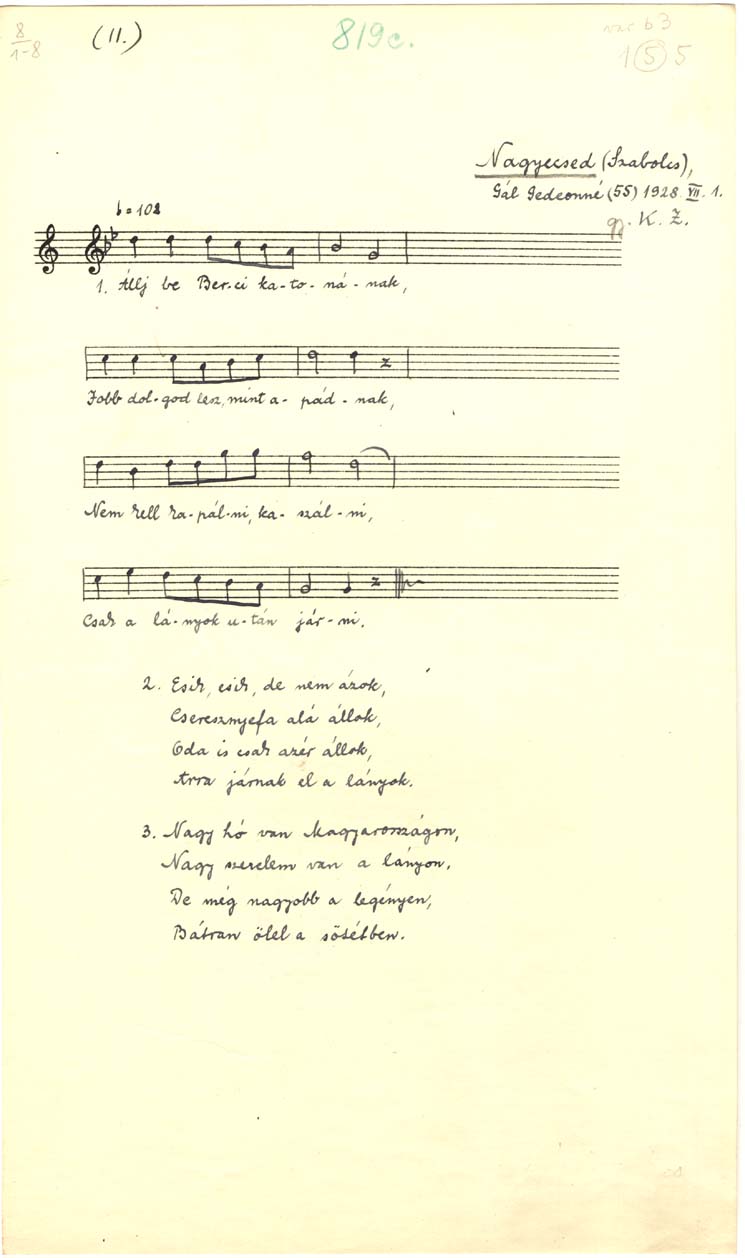 8
1-8
(II.)
819c.
var b3
1 5 5
Nagyecsed (Szabolcs),
Gál Gedeonné (55) 1928. VII. 1.
gy. K. Z.
= 102
1. Állj be Ber-ci ka-to-ná-nak,
Jobb dol-god lesz, mint a-pád-nak,
Nem kell ka-pál-ni, ka-szál-ni,
Csak a lá-nyok u-tán jár-ni.
2. Esik, esik, de nem ázok,
Cseresznyefa alá állok,
Oda is csak azér állok,
Arra járnak el a lányok.
3. Nagy hó van Magyarországon,
Nagy szerelem van a lányon,
De még nagyobb a legényen,
Bátran ölel a sötétben.